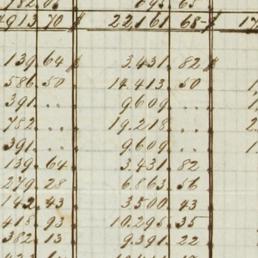 182 05 895 65
4913 70 $ 22,161 68 $ 17
139 64 $ 3.431 82 $
586 50 14.413 50
391 .. 9609 ..
782 .. 19.218 ..
391 .. 9609 ..
139 64 3.431 82
279 28 6.863 56
142 43 3500 43
418 93 10.295 35
382 13 9.391 22